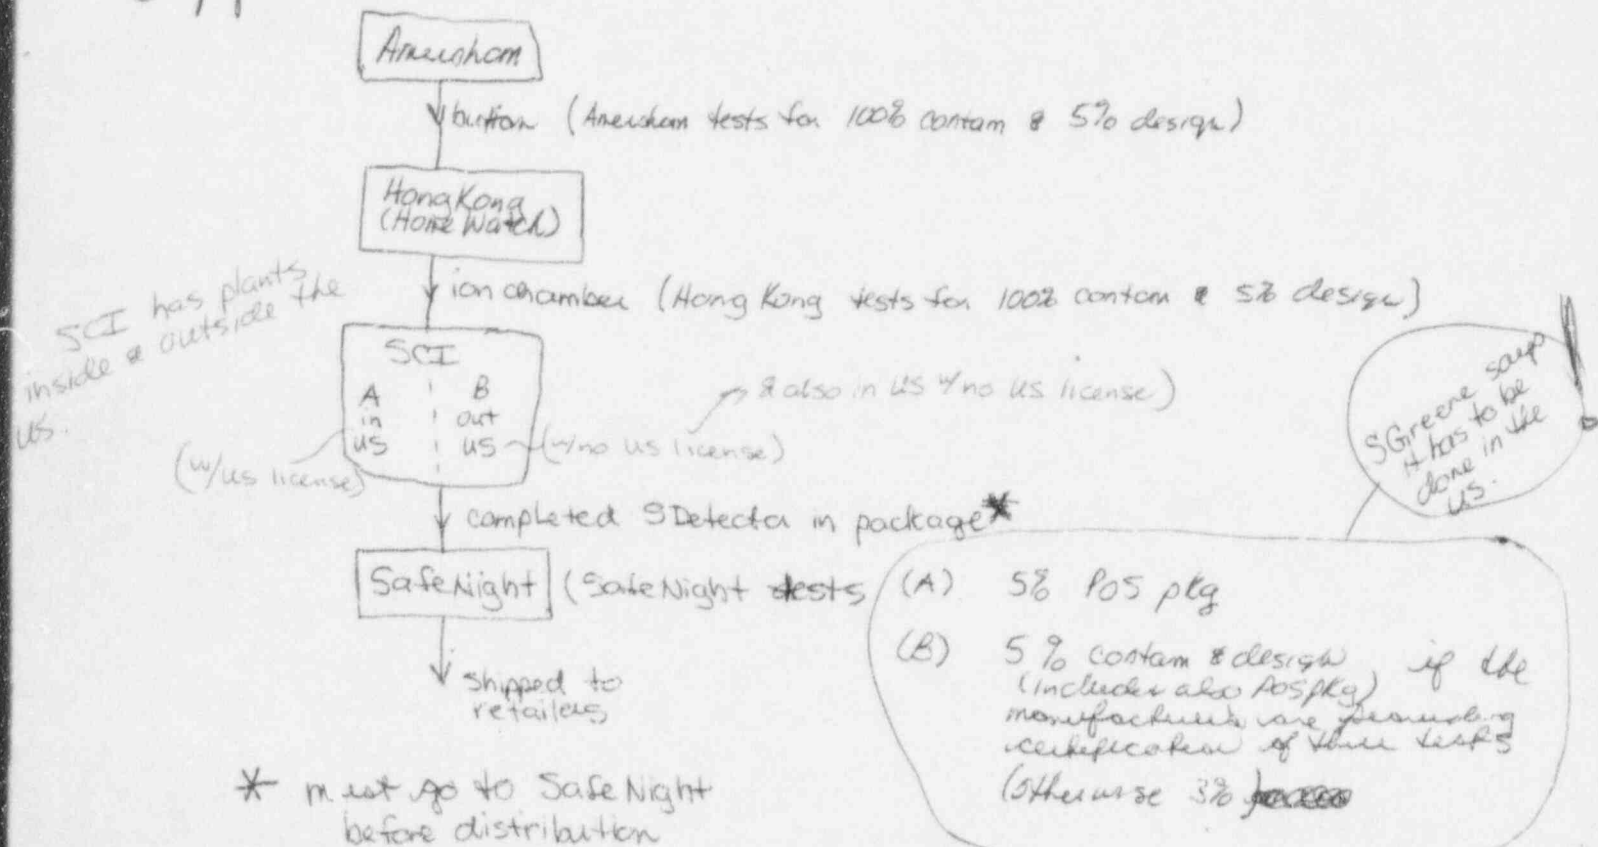 Amersham
button (Amersham tests for 100% contam & 5% design)
HongKong
(Home Watch)
ion chamber (Hong Kong tests for 100% contam & 5% design)
SCI has plants
inside & outside the
US.
SCI
A B
in out
US US
(w/US license)
(w/no US license)
& also in US w/no US license)
completed SDetector in package*
SafeNight (SafeNight tests
(A) 5% POS pkg
(B) 5% contam & design if the
(includes also POSpkg)
manufacturers are providing
certification of their tests
(Otherwise 3%
SGreene says
it has to be
done in the
US.
shipped to
retailers
* must go to SafeNight
before distribution